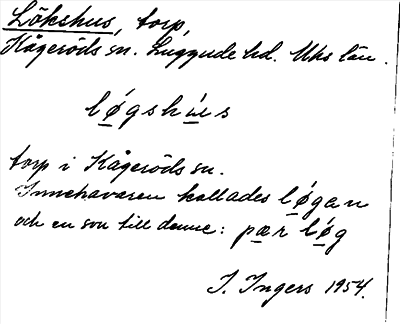 Lökshus, torp,
Kågeröds sn. Luggude hd. Mhs län.
lǿgshu̲s
torp i Kågeröds sn.
Innehavaren kallades lǿgan
och en son till denne: pær lǿg
I. Ingers 1954.